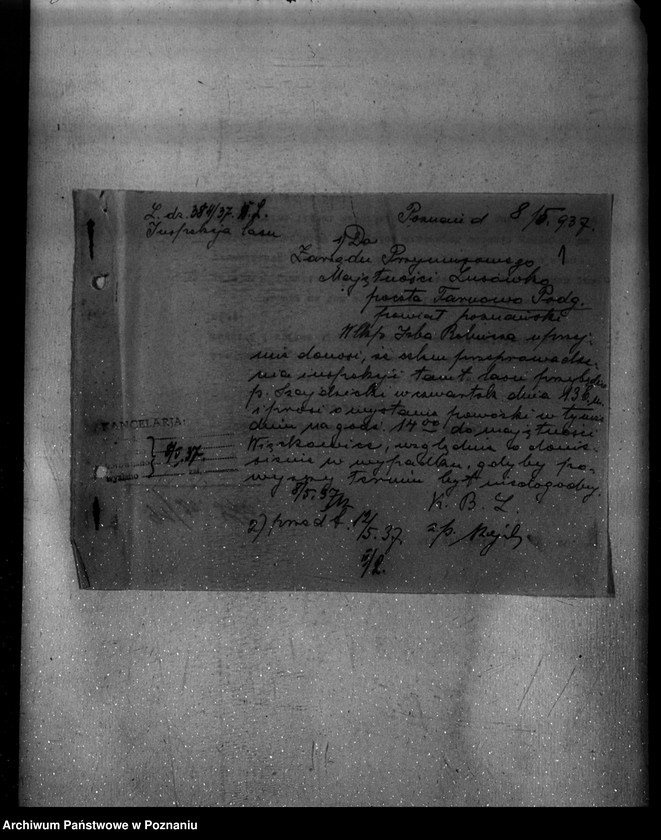 L. dz. 384/37. W.L.
Inspekcja lasu
Poznań d 8/5. 937.
1) Do
Zarządu Przymusowego
Majętności Lusówko
poczta Tarnowo Podg.
powiat poznański
Wlkp. Izba Rolnicza uprzej-
mie donosi, że celem przeprowadze-
nia inspekcji tamt. lasu przybędzie
p. w czwartek dnia 13 b.m.
i prosi o wysłanie powózki w tym
dniu na godz. 14 00 do majętności
Więckowice, względnie o donie-
sienie w wypadku, gdyby po-
wyższy termin był niedogodny.
KANCELARJA:
8/5.37.
8/5.37
K. B. L
2) przedł. 12/5.37.
z.p.